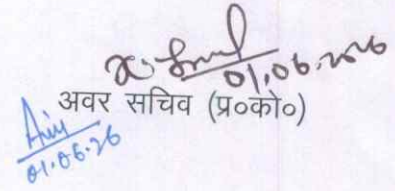 01.06.2026
अवर सचिव (प्र०को०)
01.06.26